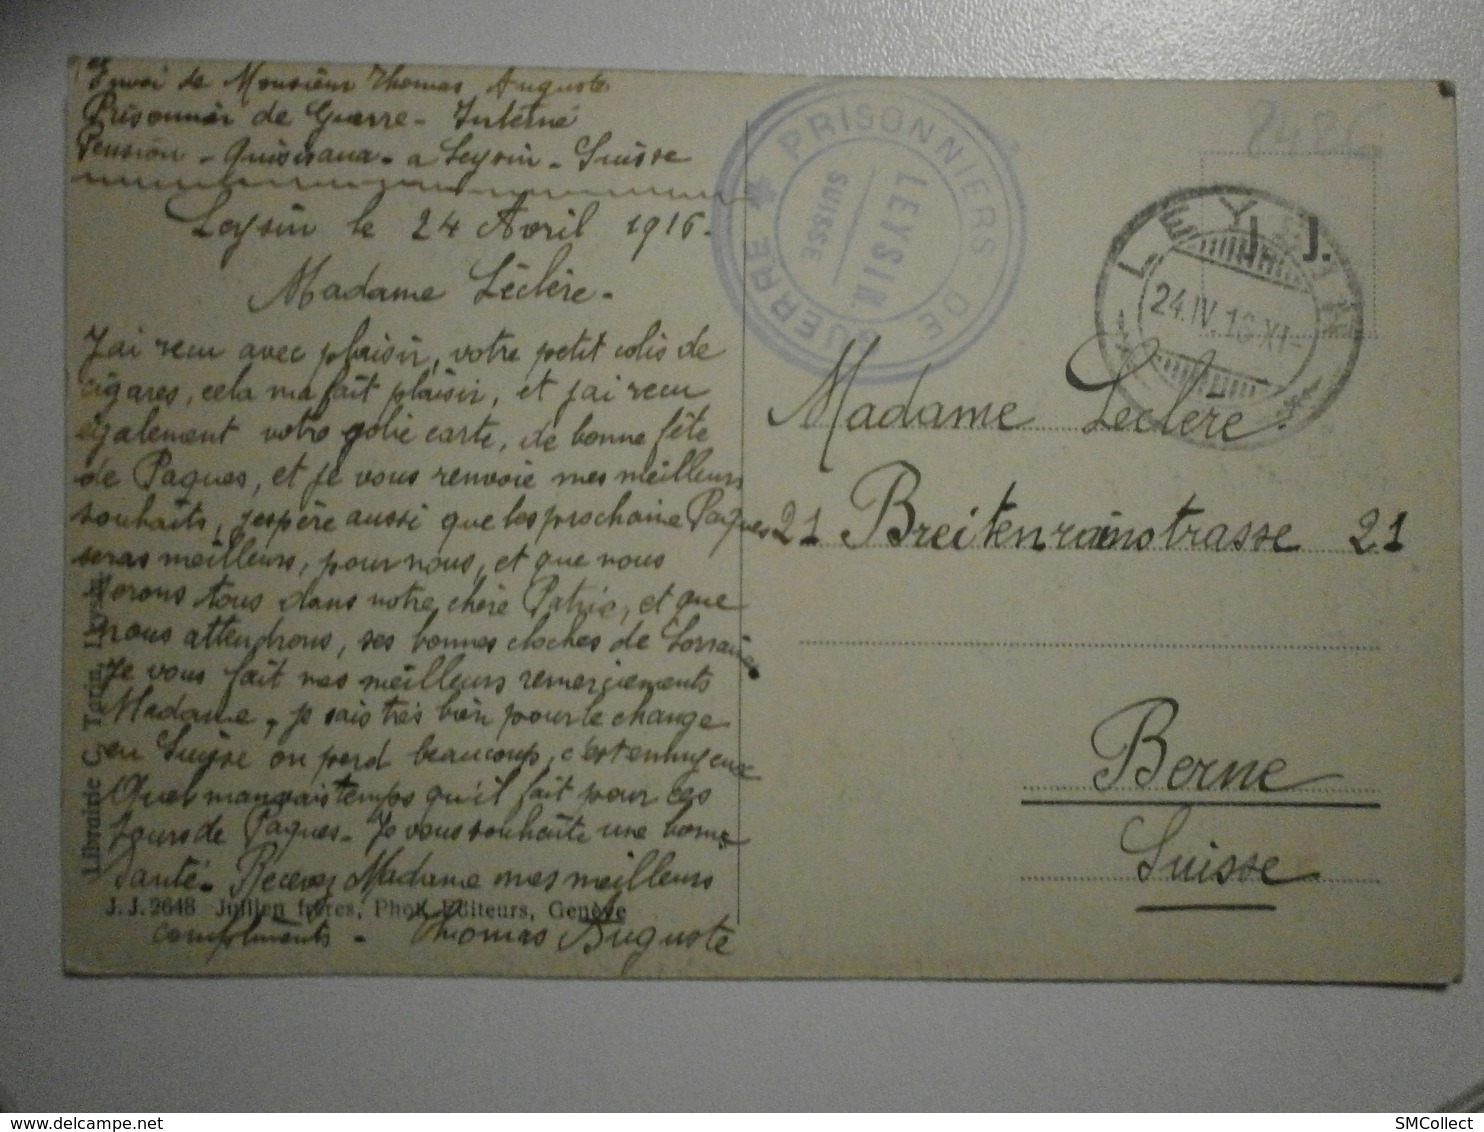 Envoi de Monsieur Thomas Auguste
Prisonnier de Guerre - Interné
Pension - Quisisana - a Leysin - Suisse
Leysin le 24 Avril 1916.
Madame Léclère -
J'ai recu avec plaisir, votre petit colis de
cigares, cela ma fait plaisir, et j'ai recu
également votre jolie carte, de bonne fête
de Paques, et je vous renvoie mes meilleurs
souhaits, j'espère aussi que les prochaine Paques
seras meilleurs, pour nous, et que nous
serons tous dans notre chère Patrie, et que
nous attendrons, ses bonnes cloches de Lorraine
Je vous fait mes meilleurs remerciements
Madame, je sais très bien pour le change
en Suisse on perd beaucoup, c'est ennuyeux
Quel mauvais temps qu'il fait pour ces
Jours de Paques - Je vous souhaite une bonne
Santé - Recevez Madame mes meilleurs
compliments - Thomas Auguste
J.J. 2648 Jullien frères, Phot. Editeurs, Genève
Librairie C. Terin, Leysin
PRISONNIERS DE GUERRE
LEYSIN.
SUISSE
LEYSIN
24.IV.16.XI-
J. J.
Madame Léclère
21 Breitenrainstrasse 21
Berne
Suisse
SMCollect